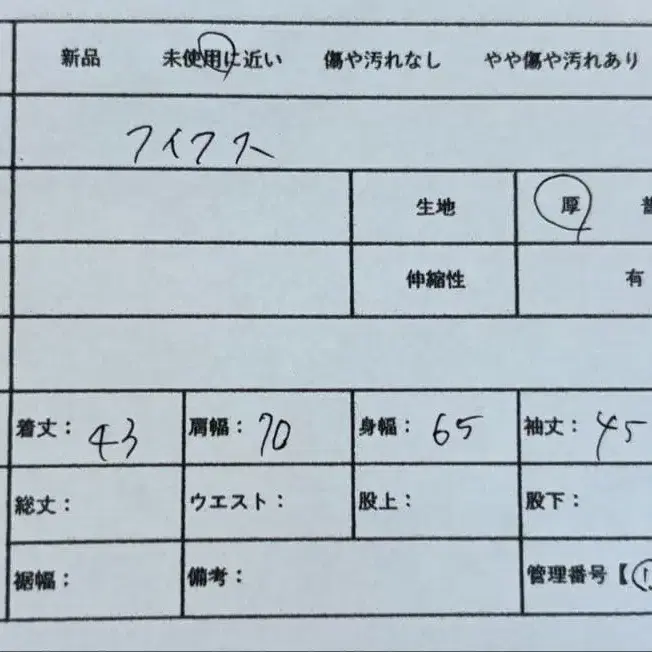 新品 未使用に近い 傷や汚れなし やや傷や汚れあり
フイフス
生地 厚
伸縮性 有
着丈： 43 肩幅： 70 身幅： 65 袖丈： 45
総丈： ウエスト： 股上： 股下：
裾幅： 備考： 管理番号【①